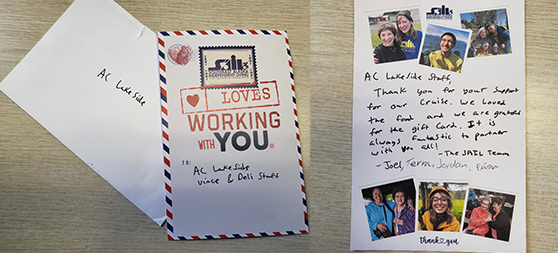 AC Lakeside
LOVES
WORKING
WITH YOU
TO:
AC Lakeside
Vince & Deli Staff
AC Lakeside Staff,
Thank you for your support
for our Cruise. We loved
the food and we are grateful
for the gift card. It is
always fantastic to partner
with you all!
-The SAIL Team
-Joel, Terra, Jordan,
thank you